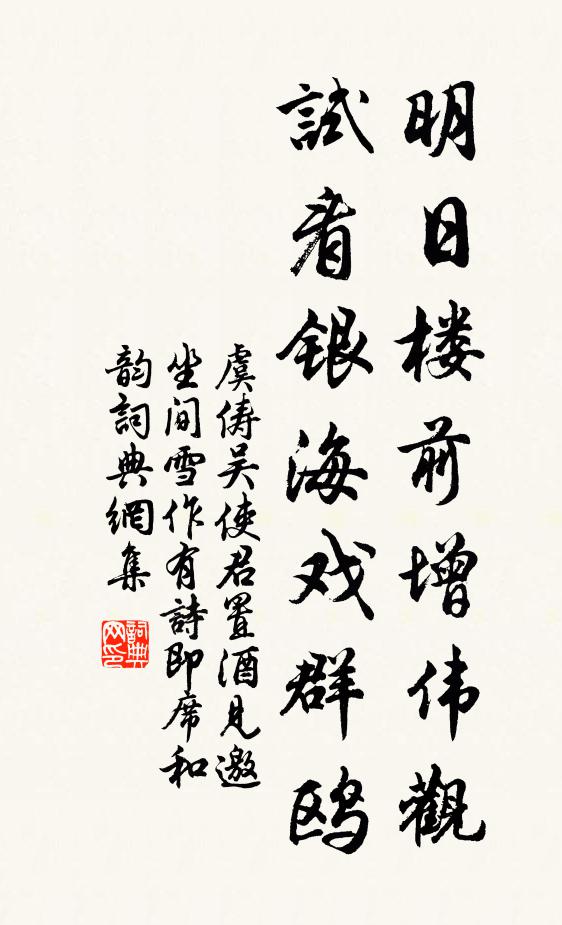 明日楼前增伟觀
試看银海戏群鸥
虞俦吴使君置酒見邀
坐间雪作有詩即席和
韵詞典網集
詞典網印